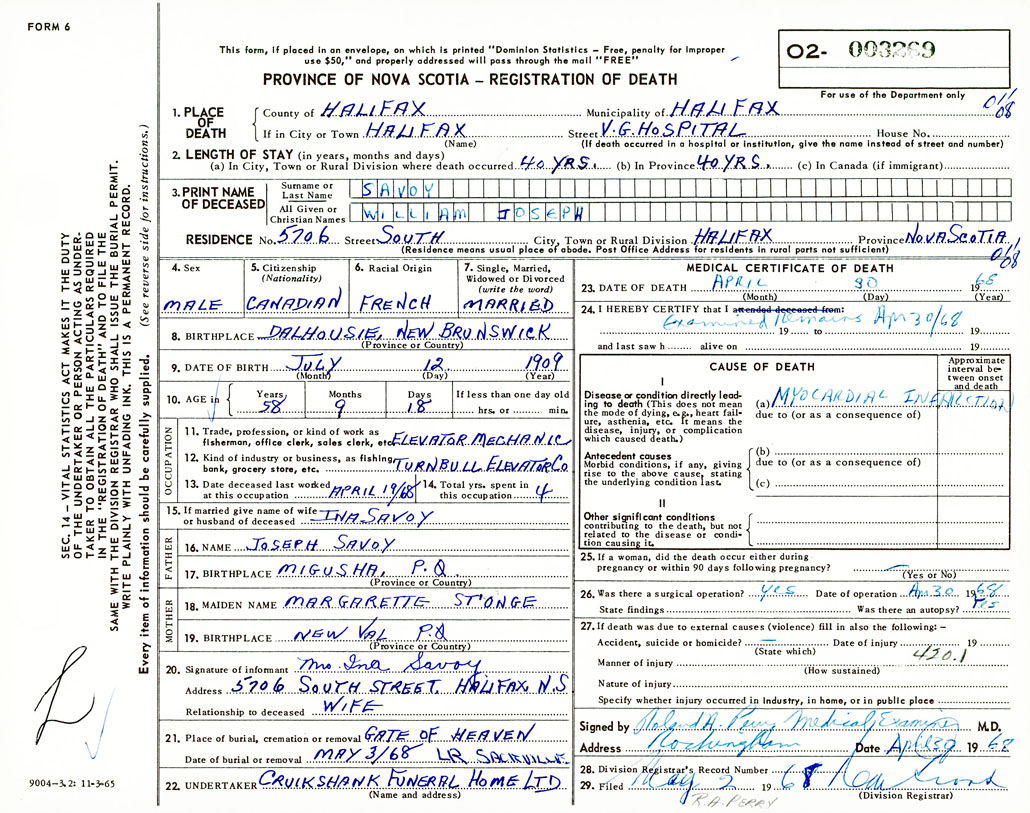 FORM 6
This form, if placed in an envelope, on which is printed "Dominion Statistics – Free, penalty for improper
use $50," and properly addressed will pass through the mail "FREE"
O2- 003269
PROVINCE OF NOVA SCOTIA – REGISTRATION OF DEATH
For use of the Department only
SEC. 14 – VITAL STATISTICS ACT MAKES IT THE DUTY
OF THE UNDERTAKER OR PERSON ACTING AS UNDER-
TAKER TO OBTAIN ALL THE PARTICULARS REQUIRED
IN THE "REGISTRATION OF DEATH" AND TO FILE THE
SAME WITH THE DIVISION REGISTRAR WHO SHALL ISSUE THE BURIAL PERMIT.
WRITE PLAINLY WITH UNFADING INK. THIS IS A PERMANENT RECORD.
Every item of information should be carefully supplied. (See reverse side for instructions.)
1. PLACE OF DEATH
County of HALIFAX Municipality of HALIFAX
If in City or Town HALIFAX Street V.G. HOSPITAL House No.
(Name) (If death occurred in a hospital or institution, give the name instead of street and number)
2. LENGTH OF STAY (in years, months and days)
(a) In City, Town or Rural Division where death occurred 40 YRS. (b) In Province 40 YRS. (c) In Canada (if immigrant)
3. PRINT NAME OF DECEASED
Surname or Last Name SAVOY
All Given or Christian Names WILLIAM JOSEPH
RESIDENCE No. 5706 Street SOUTH City, Town or Rural Division HALIFAX Province NOVA SCOTIA
(Residence means usual place of abode. Post Office Address for residents in rural parts not sufficient)
4. Sex MALE
5. Citizenship (Nationality) CANADIAN
6. Racial Origin FRENCH
7. Single, Married, Widowed or Divorced (write the word) MARRIED
8. BIRTHPLACE DALHOUSIE, NEW BRUNSWICK
(Province or Country)
9. DATE OF BIRTH JULY 12 1909
(Month) (Day) (Year)
10. AGE in Years 58 Months 9 Days 18 If less than one day old hrs. or min.
OCCUPATION
11. Trade, profession, or kind of work as
fisherman, office clerk, sales clerk, etc. ELEVATOR MECHANIC
12. Kind of industry or business, as fishing,
bank, grocery store, etc. TURNBULL ELEVATOR CO
13. Date deceased last worked at this occupation APRIL 19/68
14. Total yrs. spent in this occupation 4
15. If married give name of wife or husband of deceased INA SAVOY
FATHER
16. NAME JOSEPH SAVOY
17. BIRTHPLACE MIGUSHA, P.Q.
(Province or Country)
MOTHER
18. MAIDEN NAME MARGARETTE ST'ONGE
19. BIRTHPLACE NEW VAL P.Q
(Province or Country)
20. Signature of informant Mrs. Ina Savoy
Address 5706 SOUTH STREET, HALIFAX, N.S
Relationship to deceased WIFE
21. Place of burial, cremation or removal GATE OF HEAVEN
Date of burial or removal MAY 3/68 LR. SACKVILLE
22. UNDERTAKER CRUIKSHANK FUNERAL HOME LTD
(Name and address)
9004-3.2: 11-3-65
MEDICAL CERTIFICATE OF DEATH
23. DATE OF DEATH APRIL 30 1968
(Month) (Day) (Year)
24. I HEREBY CERTIFY that I attended deceased from:
Examined Remains Apr 30/68
19 to 19
and last saw h alive on 19
CAUSE OF DEATH
Approximate interval between onset and death
I
Disease or condition directly lead-
ing to death (This does not mean
the mode of dying, e.g., heart fail-
ure, asthenia, etc. It means the
disease, injury, or complication
which caused death.)
(a) MYOCARDIAL INFARCTION
due to (or as a consequence of)
Antecedent causes
Morbid conditions, if any, giving
rise to the above cause, stating
the underlying condition last.
(b)
due to (or as a consequence of)
(c)
II
Other significant conditions
contributing to the death, but not
related to the disease or condi-
tion causing it.
25. If a woman, did the death occur either during
pregnancy or within 90 days following pregnancy?
(Yes or No)
26. Was there a surgical operation? yes Date of operation Apr. 30 1968
State findings Was there an autopsy? yes
27. If death was due to external causes (violence) fill in also the following: –
Accident, suicide or homicide? Date of injury 19
(State which) 420.1
Manner of injury
(How sustained)
Nature of injury
Specify whether injury occurred in Industry, in home, or in public place
Signed by Roland A. Perry Medical Examiner M.D.
Address Rockingham Date April 30 1968
28. Division Registrar's Record Number
29. Filed May 2 1968
(Division Registrar)
R.A. PERRY